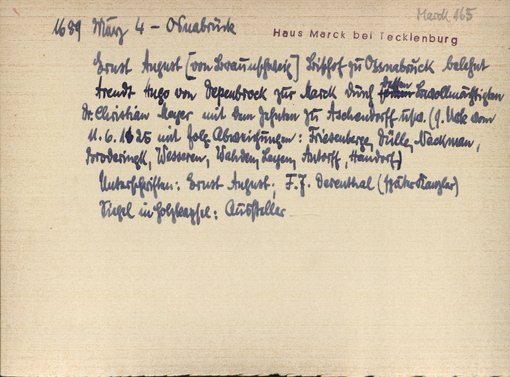 Marck 165
1689 März 4 – Osnabrück
Haus Marck bei Tecklenburg
Ernst August [von Braunschweig] Bischof zu Osnabrück belehnt
Arendt Hugo von Depenbrock zur Marck durch dessen Bevollmächtigten
Dr. Christian Meyer mit dem Zehnten zu Aschendorff usw. (s. Urk. vom
11. 6. 1625 mit folg. Abweichungen: Friesenberge, Dülle, Nackman,
Wesseren, Antorff, Handorf)
Unterschriften: Ernst August, F. J. Derenthal (später Kanzler)
Siegel in Holzkapsel: Aussteller